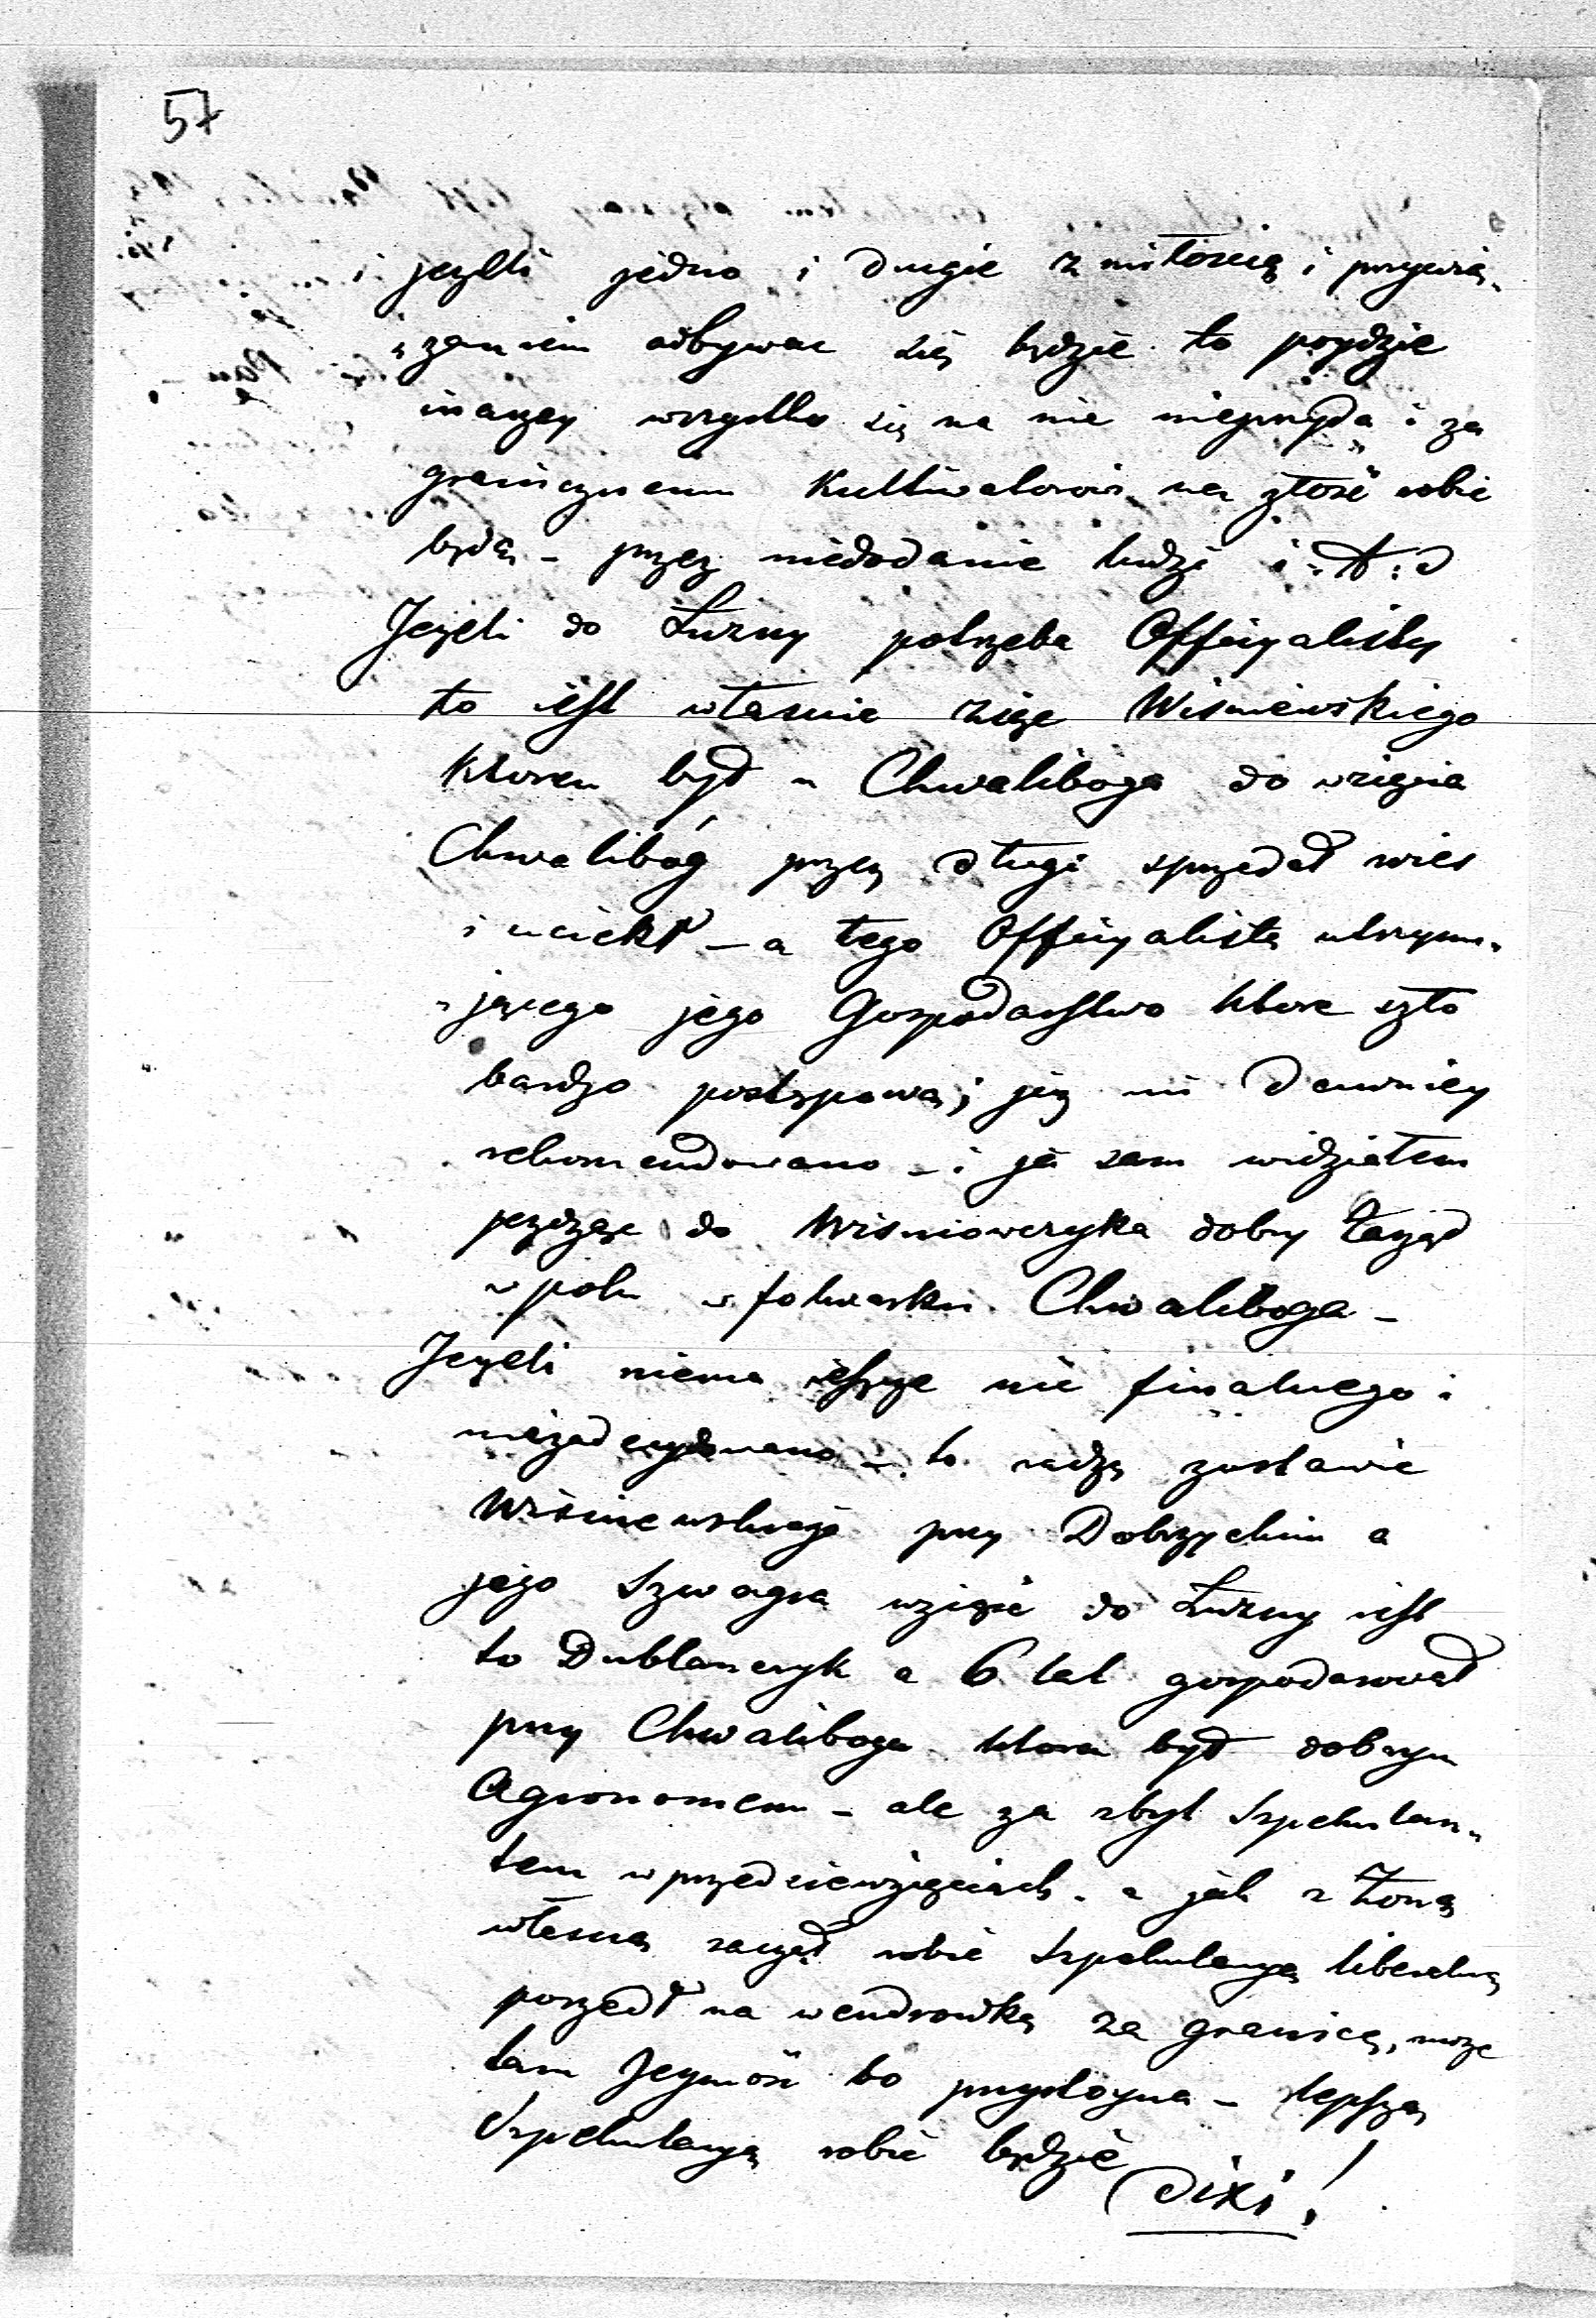 57
i jeżeli jedno i drugie z miłością i przywią„
„zaniem odbywac się będzie to poydzie
inaczey wszystko się na nic nieprzyda i za
granicznemu Kultiwatorowi na złość robić
będą – przez niedodanie ludzi i : t : d
Jeżeli do Łużny potrzeba Officyalisty
to iest własnie zięc Wisniewskiego
ktoren był u Chwaliboga do wzięcia
Chwalibóg przez długi sprzedał wies
i uciekł – a tego Officyalistę utrzymu„
„jącego jego Gospodarstwo ktore szło
bardzo postępowa; już mi dawniey
rekomendowano – i ja sam widziałem
jezdząc do Wisnioweryka dobry
w polu w folwarku Chwaliboga –
Jeżeli niema ieszcze nic finalnego i
niezadecydowano – to radzę zostawić
Wisniewskiego przy Dobrzechim a
jego Szwagra wziąść do Łużny iest
to Dublanczyk a 6 lat gospodarował
przy Chwaliboga ktoren był dobrym
Agronomem – ale za zbyt Szpekulan„
tem w przedsiewzięciach – a jak z Żoną
własną zaczął robić Szpekulacyą liberalną
poszedł na wendrowkę za granicę, może
tam Jeymość bo przystoyna – lepszą
Szpekulacyą robić będzie
Dixi!